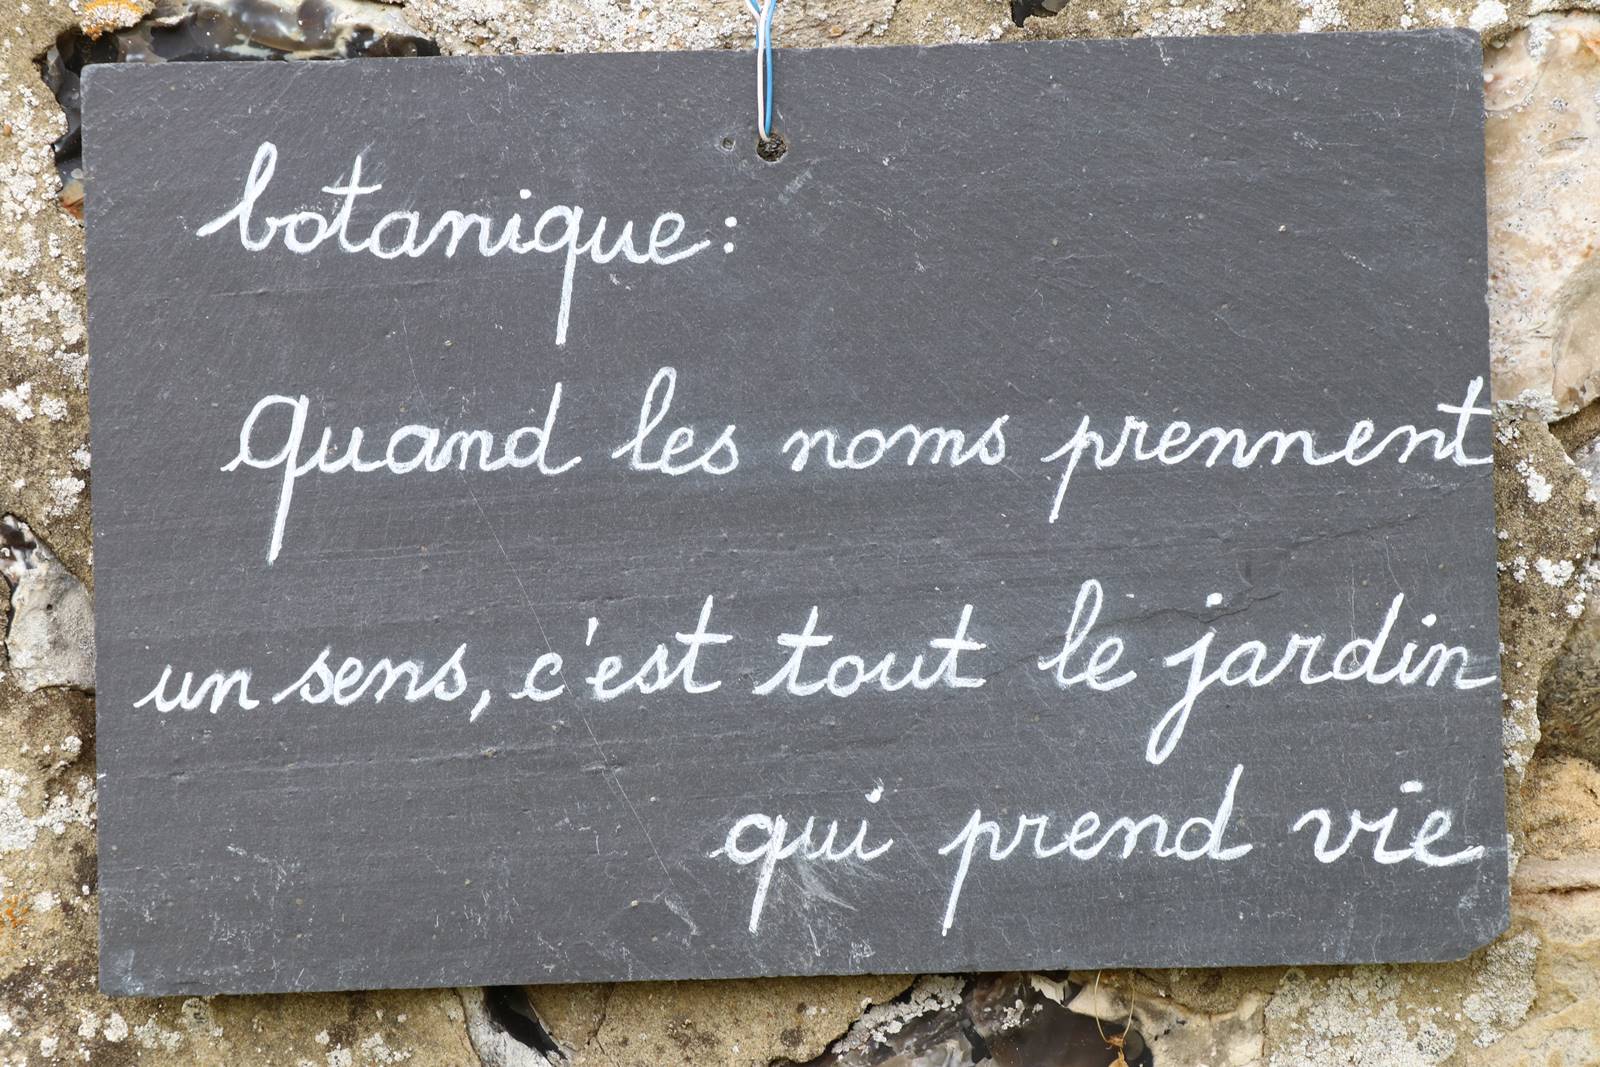 botanique :
quand les noms prennent
un sens, c'est tout le jardin
qui prend vie